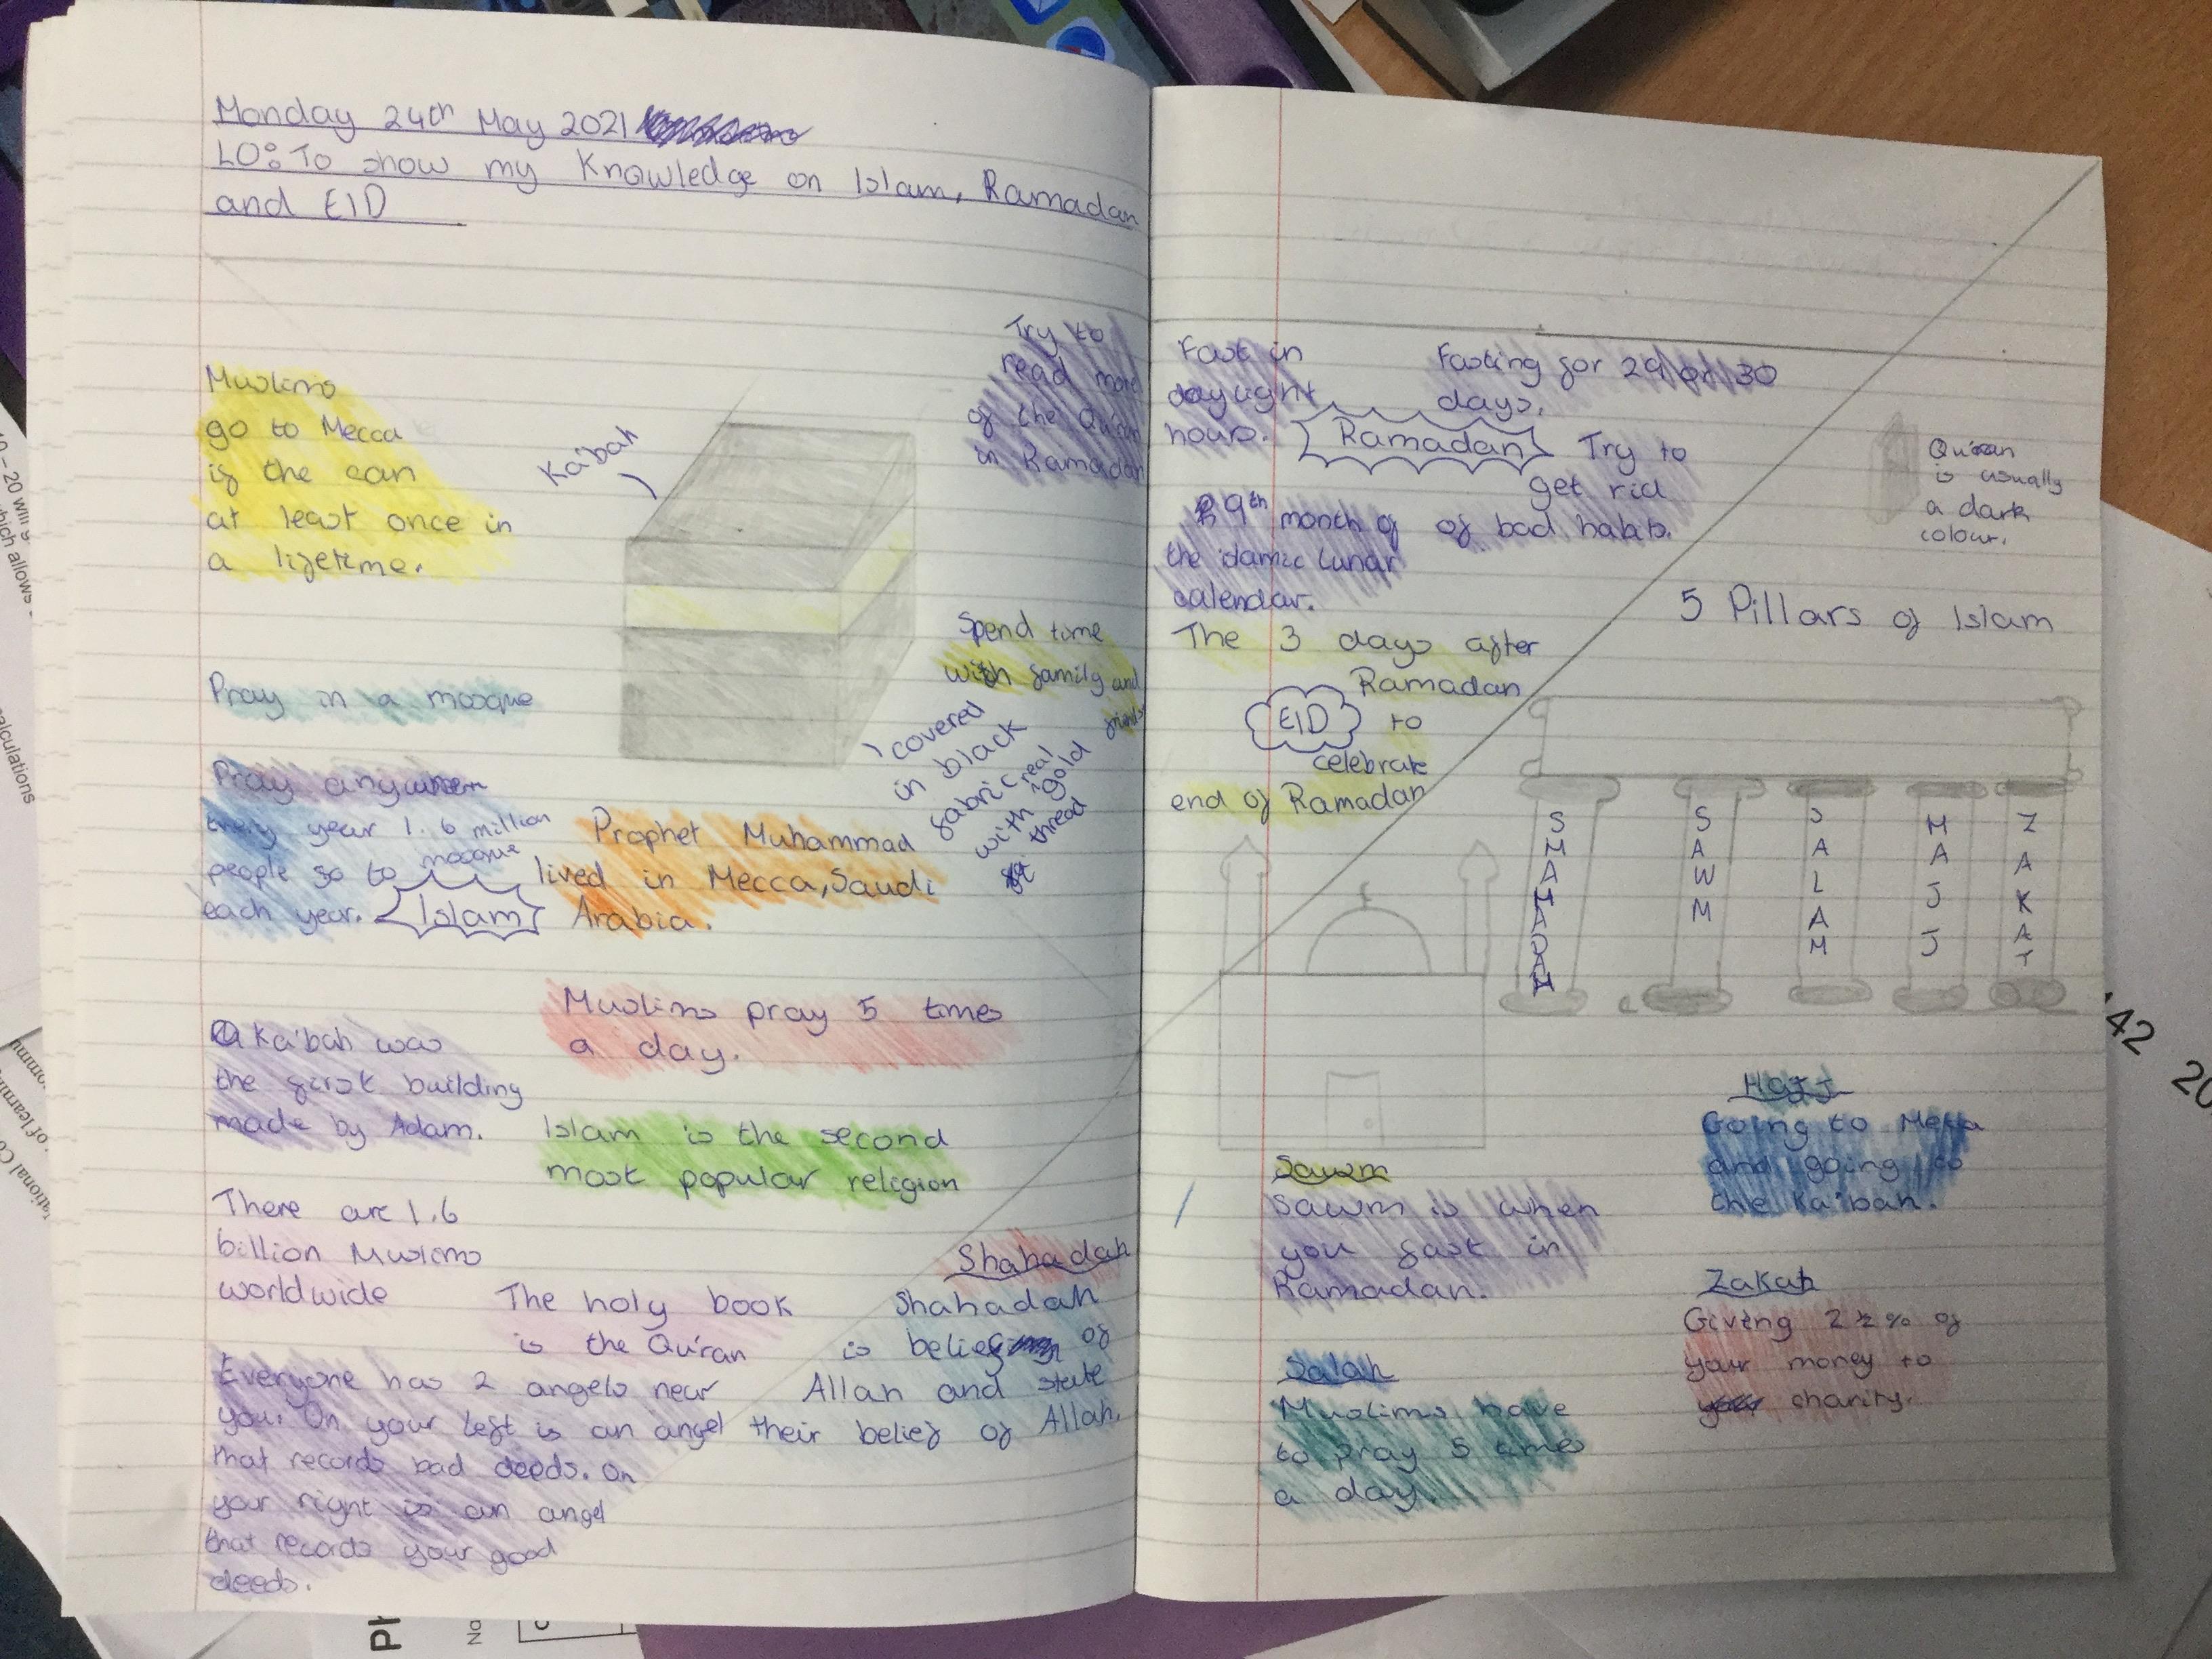 Monday 24th May 2021
LO: To show my Knowledge on Islam, Ramadan
and EID
Muslims
go to Mecca
if the can
at least once in
a lifetime.
Ka'bah
Try to
read more
of the Qu'ran
in Ramadan
Pray in a mosque
Spend time
with family and
friends
covered
in black
fabric real
with gold
thread
Pray anywhere
Every year 1.6 million
people go to mosque
each year.
Islam
Prophet Muhammad
lived in Mecca, Saudi
Arabia.
Muslims pray 5 times
a day.
Ka'bah was
the first building
made by Adam.
Islam is the second
most popular religion
There are 1.6
billion Muslims
worldwide
The holy book
is the Qu'ran
Shahadah
Shahadah
is belief of
Allah and state
their belief of Allah.
Everyone has 2 angels near
you. On your left is an angel
that records bad deeds. On
your right is an angel
that records your good
deeds.
Fast in
daylight
hours.
Fasting for 29 or 30
days.
Ramadan
Try to
get rid
of bad habits.
9th month of
the islamic lunar
calendar.
The 3 days after
Ramadan
EID
to
celebrate
end of Ramadan
Qu'ran
is usually
a dark
colour.
5 Pillars of Islam
SHAHADAH
SAWM
SALAH
HAJJ
ZAKAT
Sawm
Sawm is when
you fast in
Ramadan.
Salah
Muslims have
to pray 5 times
a day.
Hajj
Going to Mecca
and going to
the Ka'bah.
Zakah
Giving 2½% of
your money to
charity.
42
20
calculations